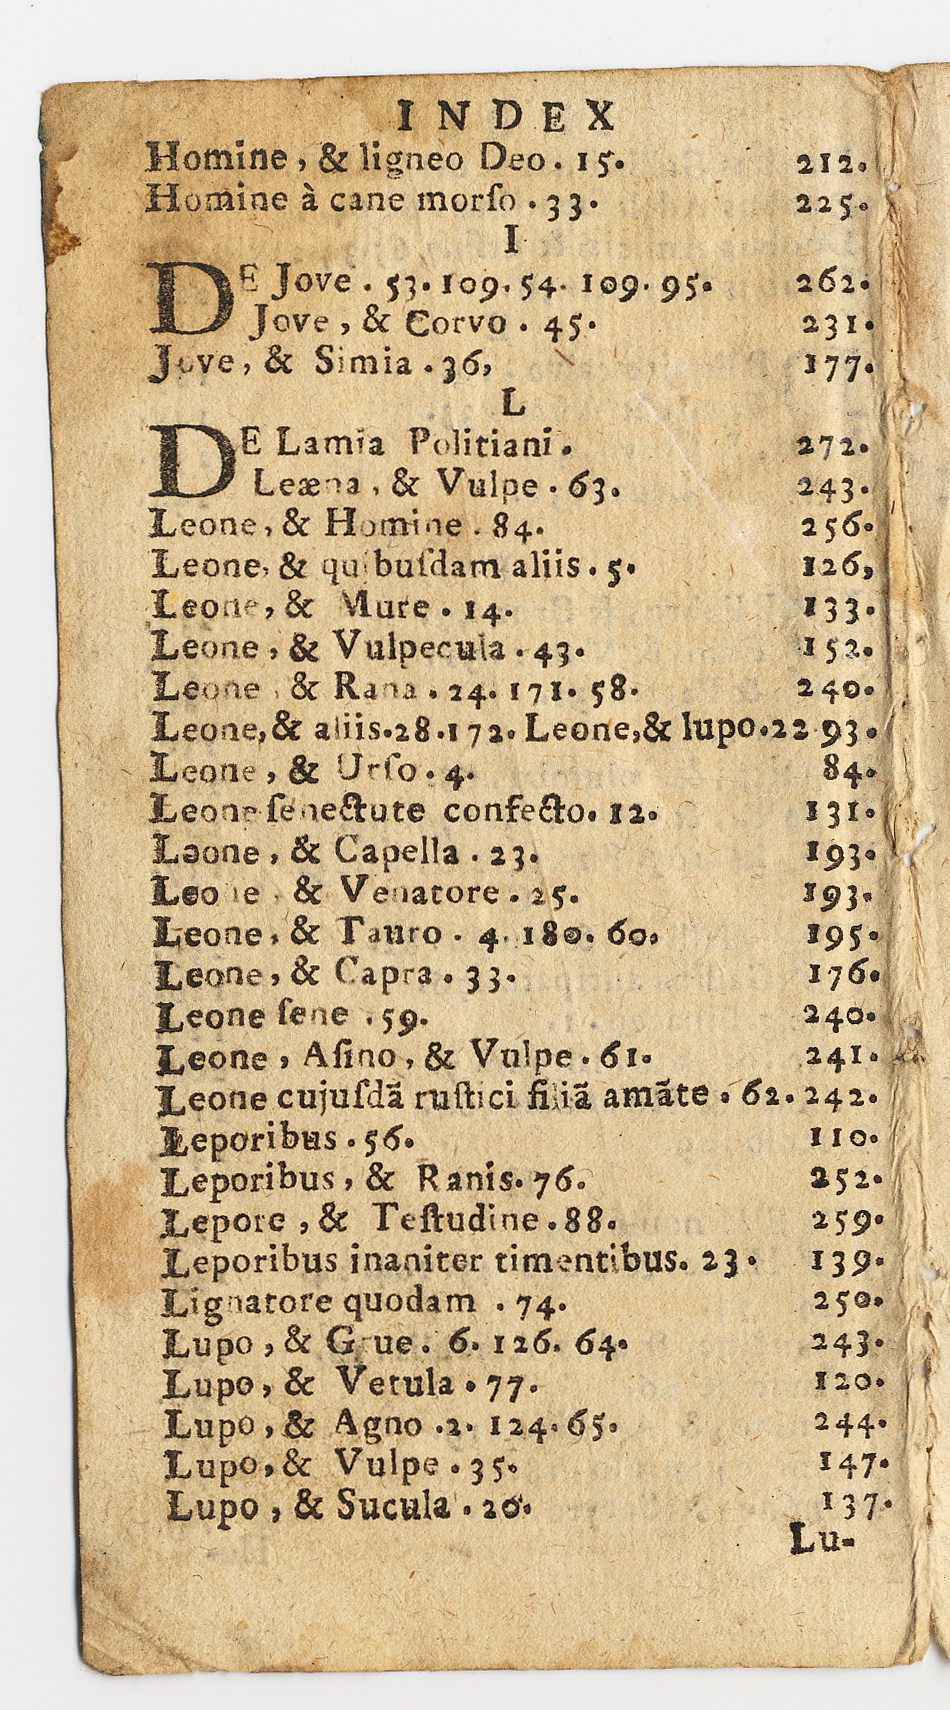 INDEX
Homine, & ligneo Deo. 15. 212.
Homine à cane morſo. 33. 225.
I
DE Jove. 53. 109. 54. 109. 95. 262.
Jove, & Corvo. 45. 231.
Jove, & Simia. 36, 177.
L
DE Lamia Politiani. 272.
Leæna, & Vulpe. 63. 243.
Leone, & Homine. 84. 256.
Leone, & quibuſdam aliis. 5. 126,
Leone, & Mure. 14. 133.
Leone, & Vulpecula. 43. 152.
Leone, & Rana. 24. 171. 58. 240.
Leone, & aliis. 28. 172. Leone, & lupo. 22 93.
Leone, & Urſo. 4. 84.
Leone ſenectute confecto. 12. 131.
Leone, & Capella. 23. 193.
Leone, & Venatore. 25. 193.
Leone, & Tauro. 4. 180. 60. 195.
Leone, & Capra. 33. 176.
Leone ſene. 59. 240.
Leone, Aſino, & Vulpe. 61. 241.
Leone cujuſdã ruſtici filiã amãte. 62. 242.
Leporibus. 56. 110.
Leporibus, & Ranis. 76. 252.
Lepore, & Teſtudine. 88. 259.
Leporibus inaniter timentibus. 23. 139.
Lignatore quodam. 74. 250.
Lupo, & Grue. 6. 126. 64. 243.
Lupo, & Vetula. 77. 120.
Lupo, & Agno. 2. 124. 65. 244.
Lupo, & Vulpe. 35. 147.
Lupo, & Sucula. 20. 137.
Lu-